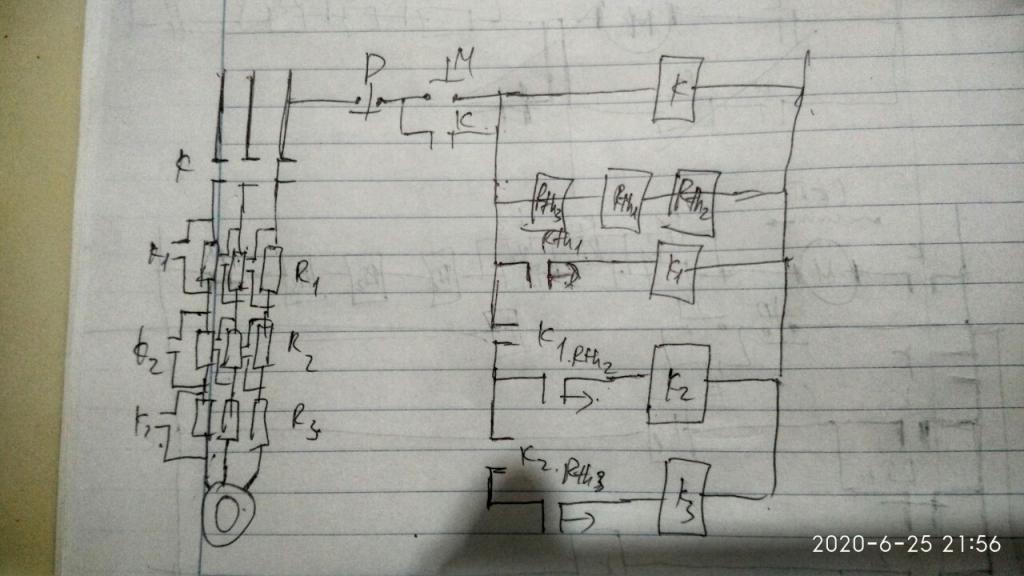 D
M
K
K
K
Rth3
Rth1
Rth2
Rth1
K1
K1
R1
K2
R2
K1.Rth2
K2
K3
R3
K2.Rth3
K3
2020-6-25 21:56